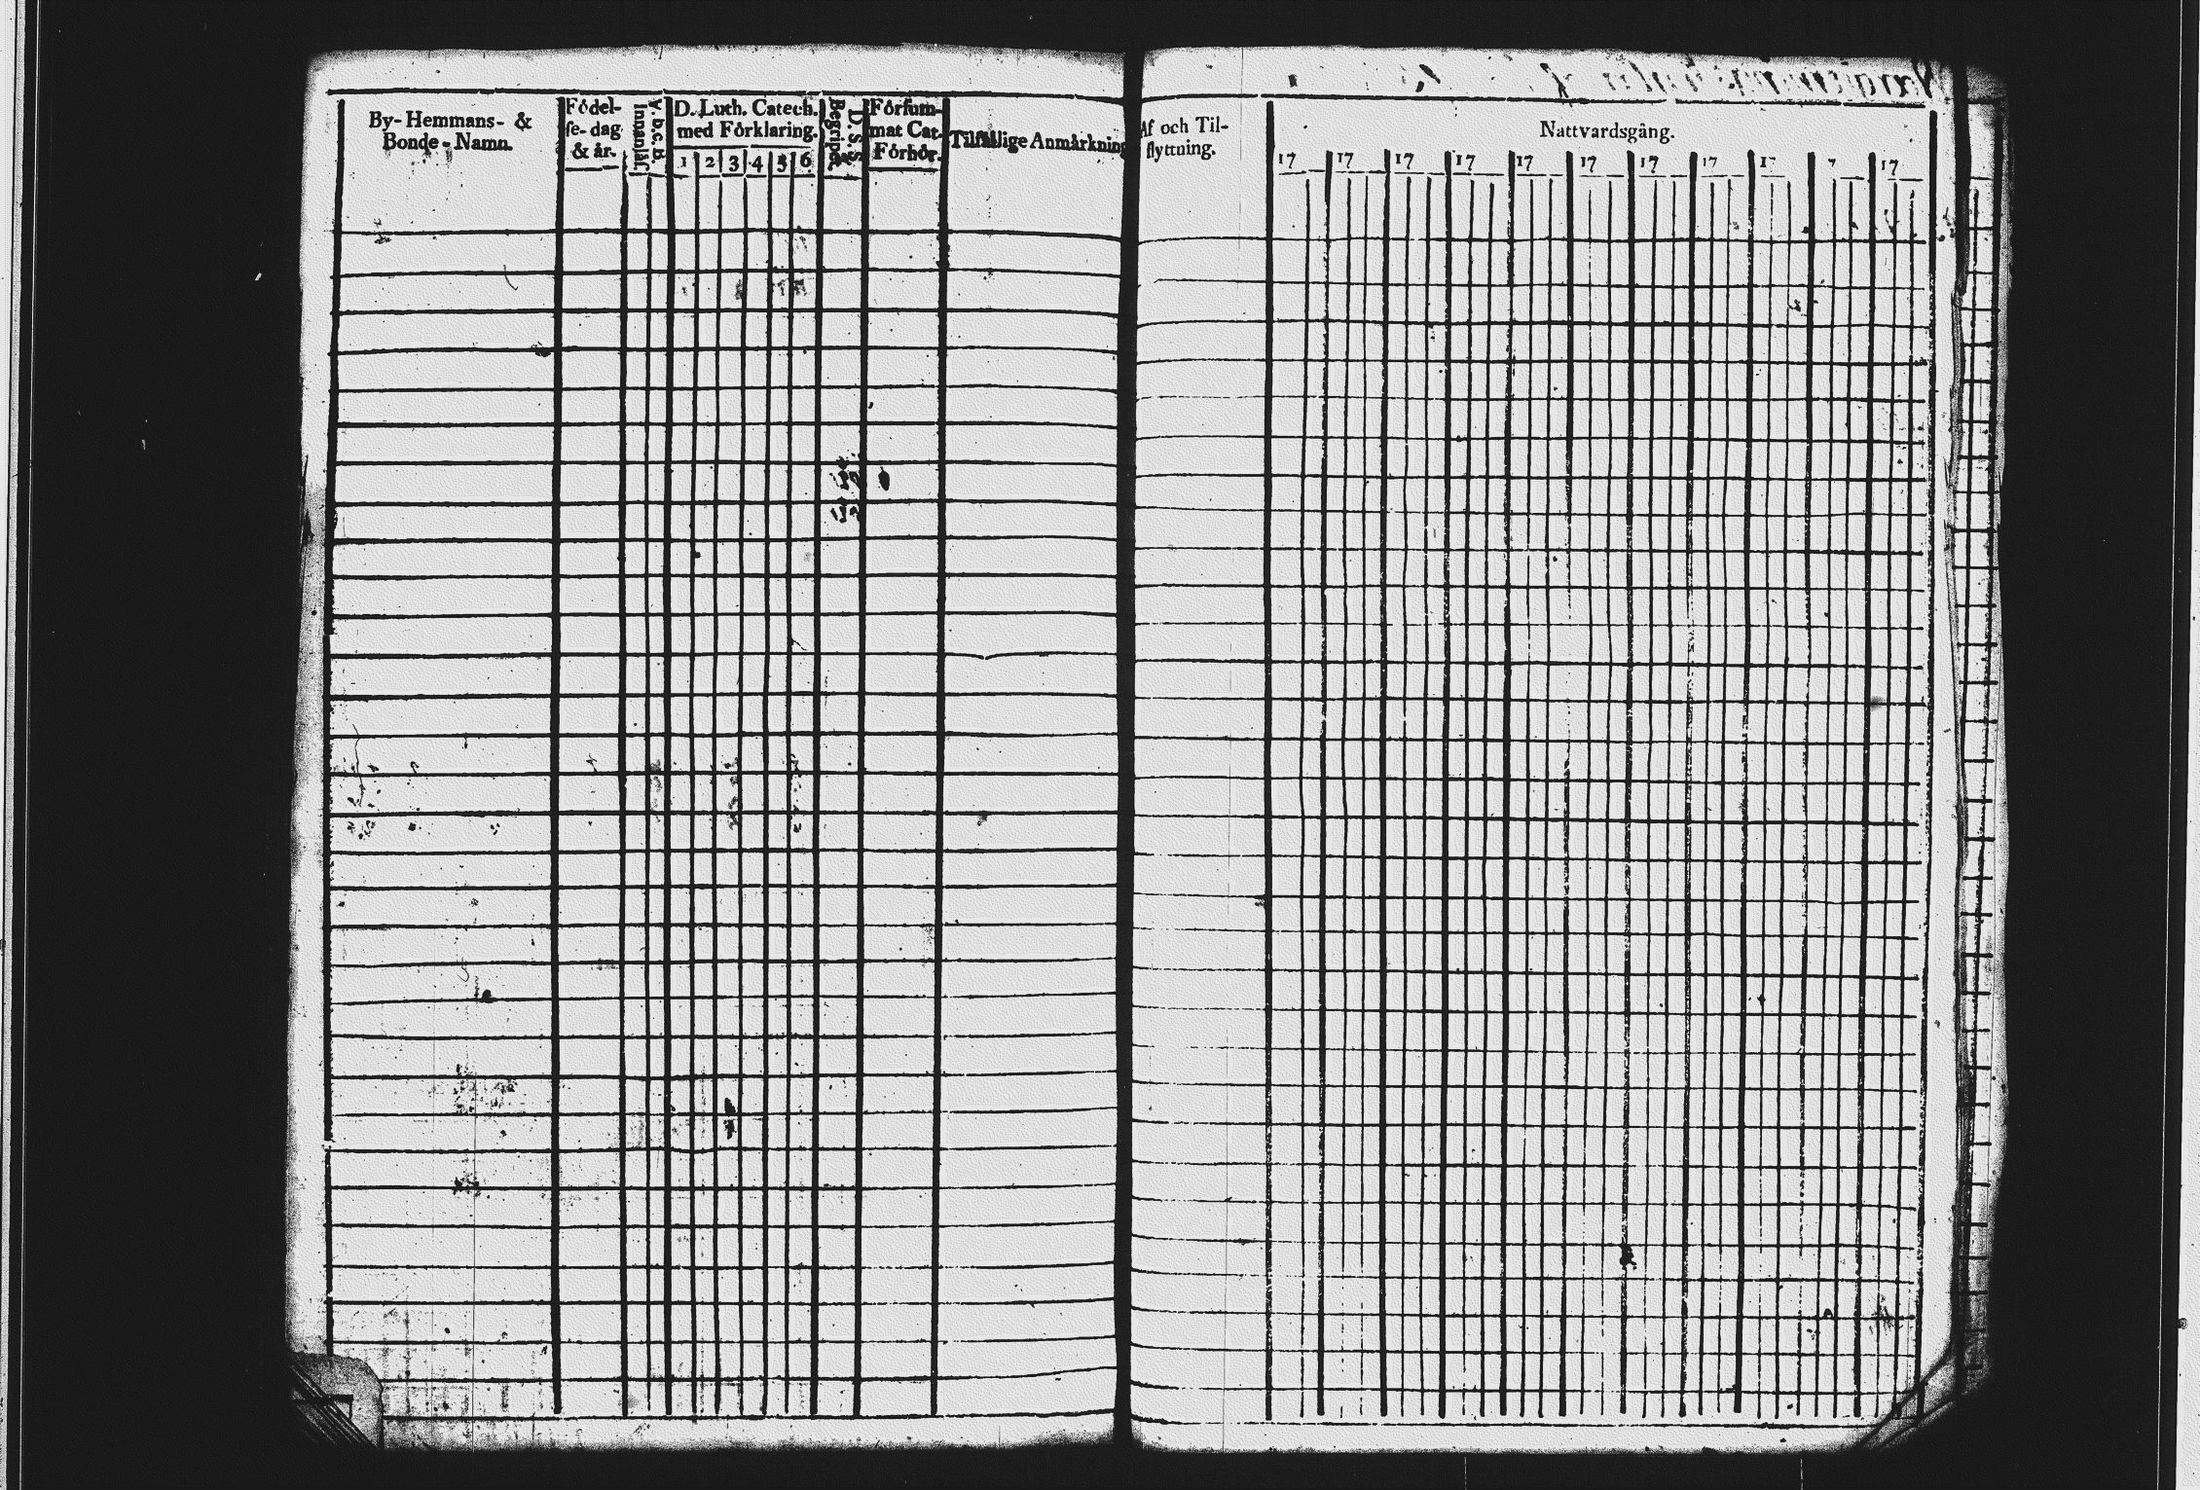 By- Hemmans- &
Bonde - Namn.
Födel-
se- dag
& år.
V. b. c. b.
Innanläs.
D. Luth. Catech.
med Förklaring.
1 2 3 4 5 6
Begripet
D. S. S.
Försum-
mat Cat-
Förhör.
Tilfällige Anmärkning
Af och Til-
flyttning.
Nattvardsgång.
17 17 17 17 17 17 17 17 17